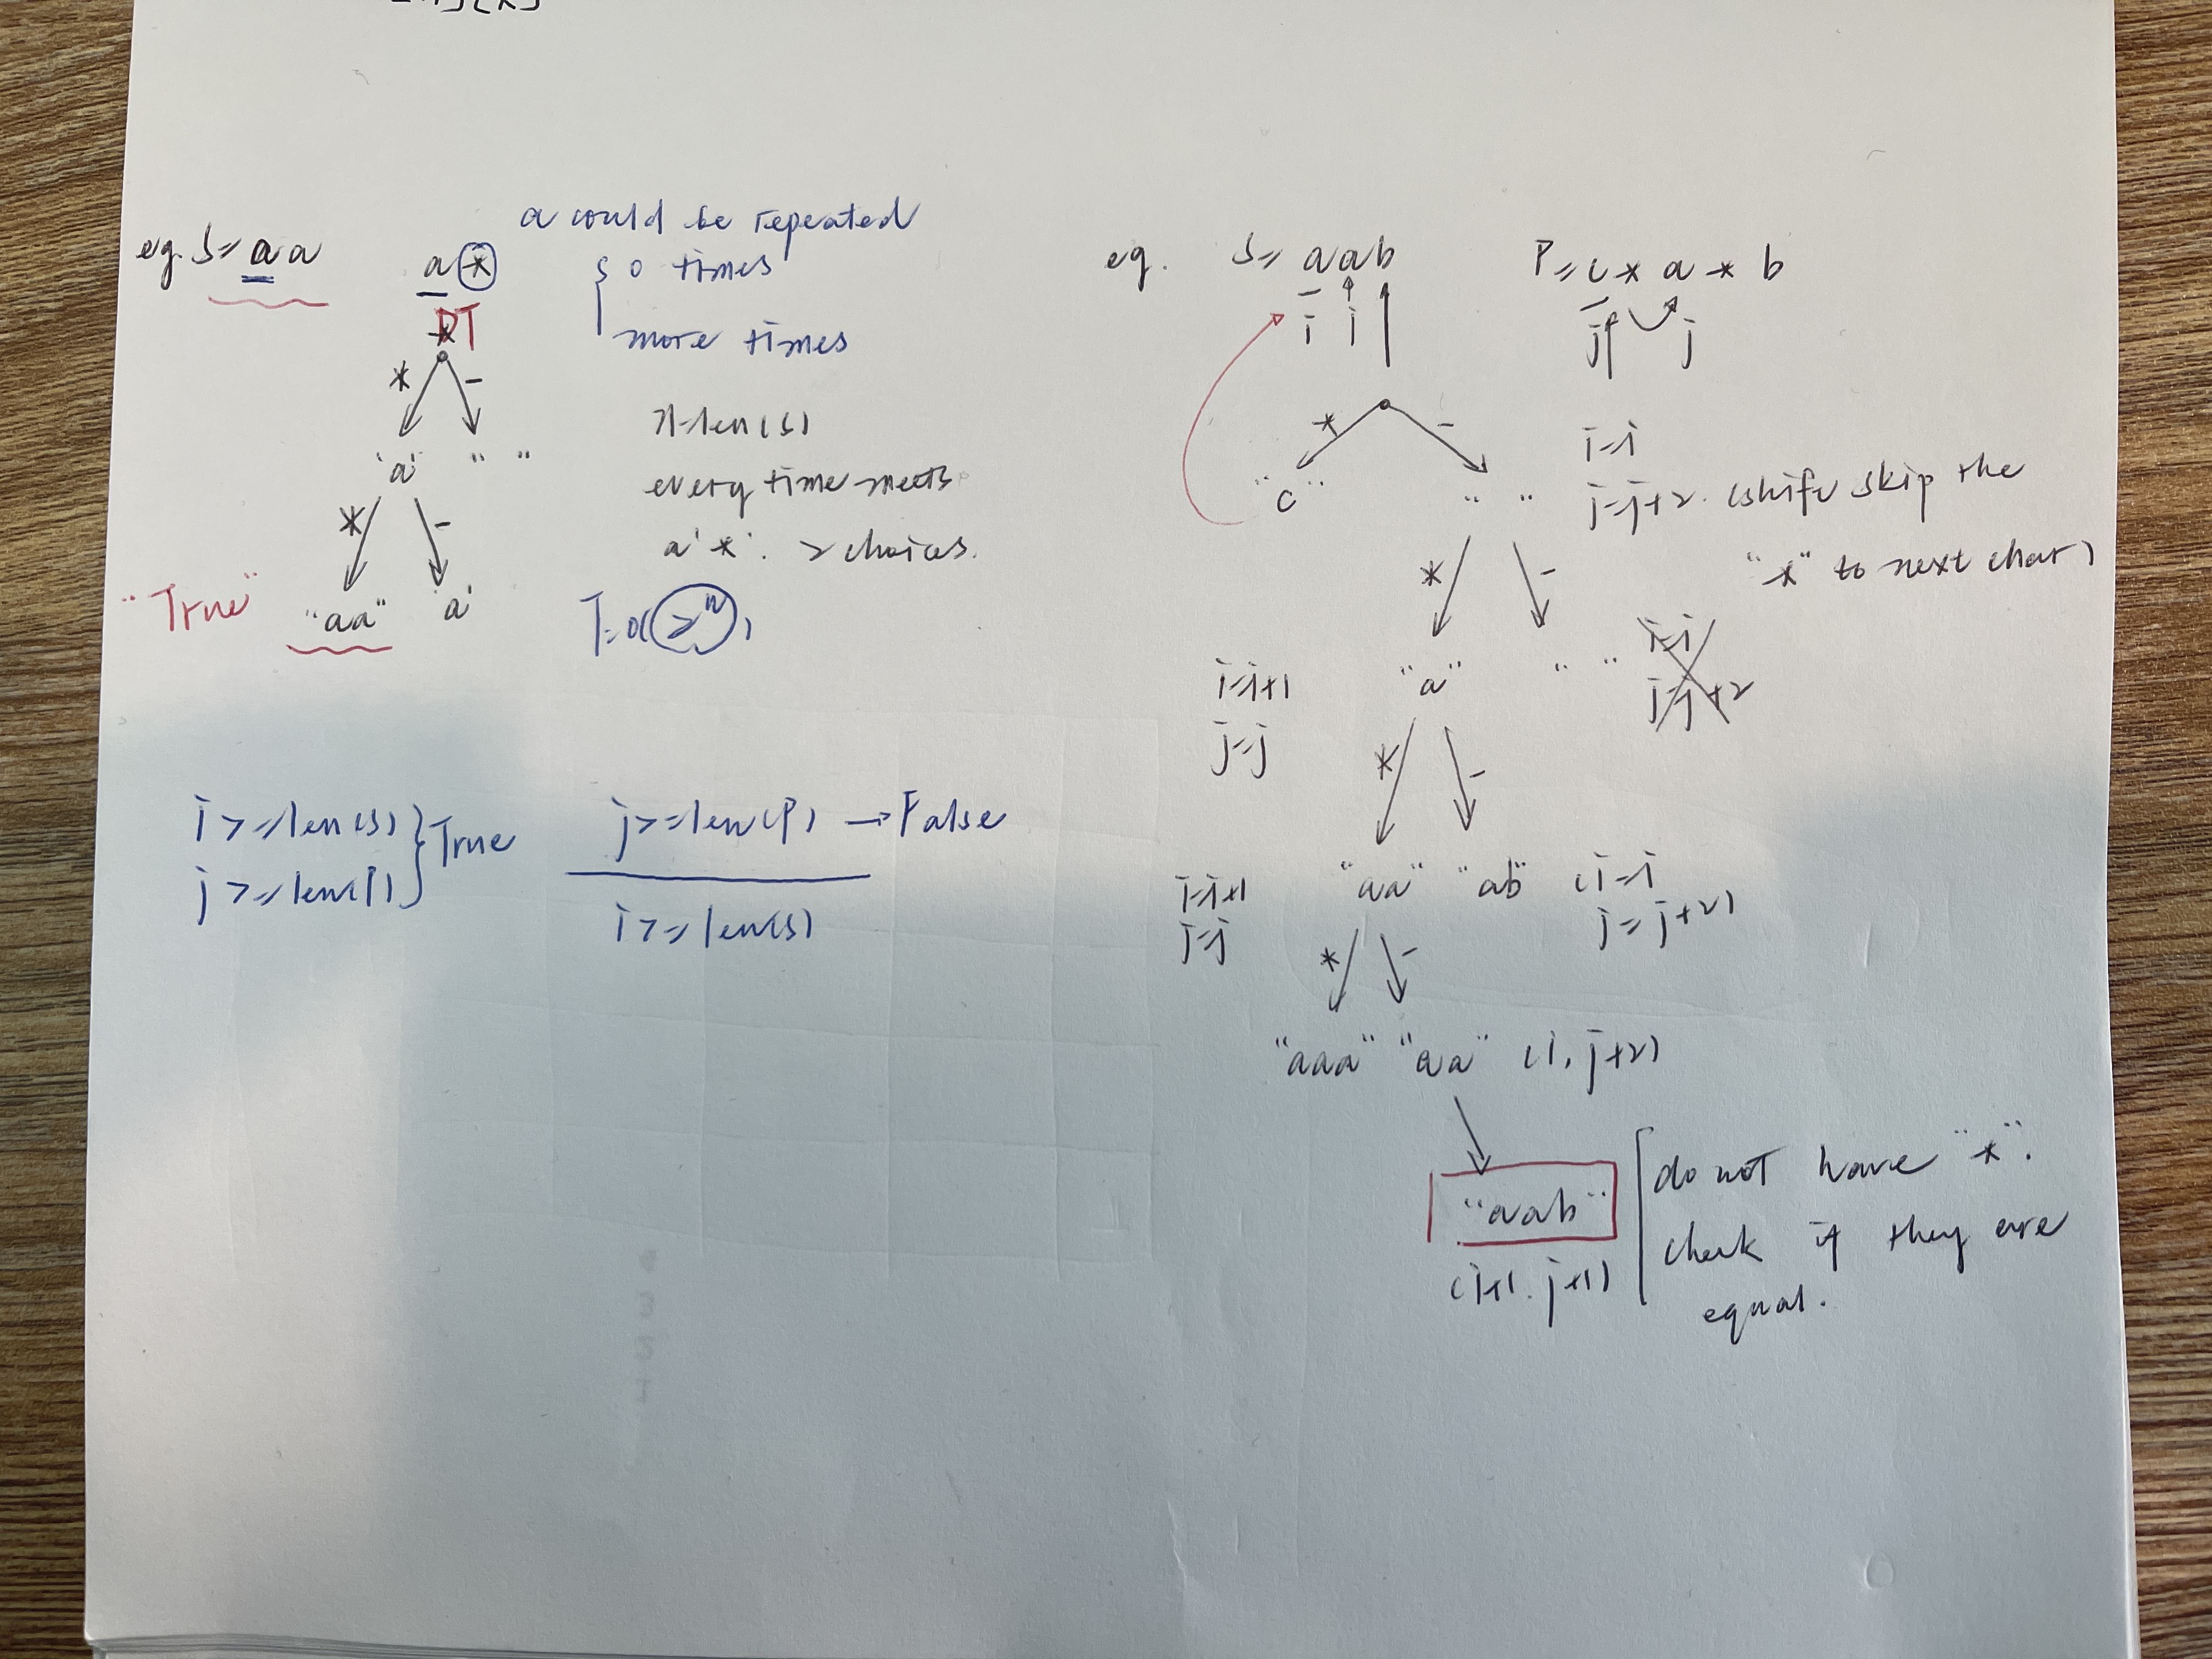 eg. S= aa a*
a could be repeated
0 times
more times
DT
* -
'a' " "
* -
"True" "aa" 'a'
n=len(s)
every time meets
a'*'. 2 choices.
T=O(2^n)
i>=len(s)
j>=len(P)
} True
j>=len(P) → False
i>=len(s)
eg. S= aab P= c*a*b
i i j j
* -
"c" " "
i=i
j=j+2. (shift skip the
"*" to next char)
* -
i=i+1
j=j
"a" " "
i=i
j=j+2
* -
i=i+1
j=j
"aa" "ab" (i=i
j=j+2)
* -
"aaa" "aa" (i, j+2)
"aab"
(i+1. j+1)
do not have "*".
check if they are
equal.